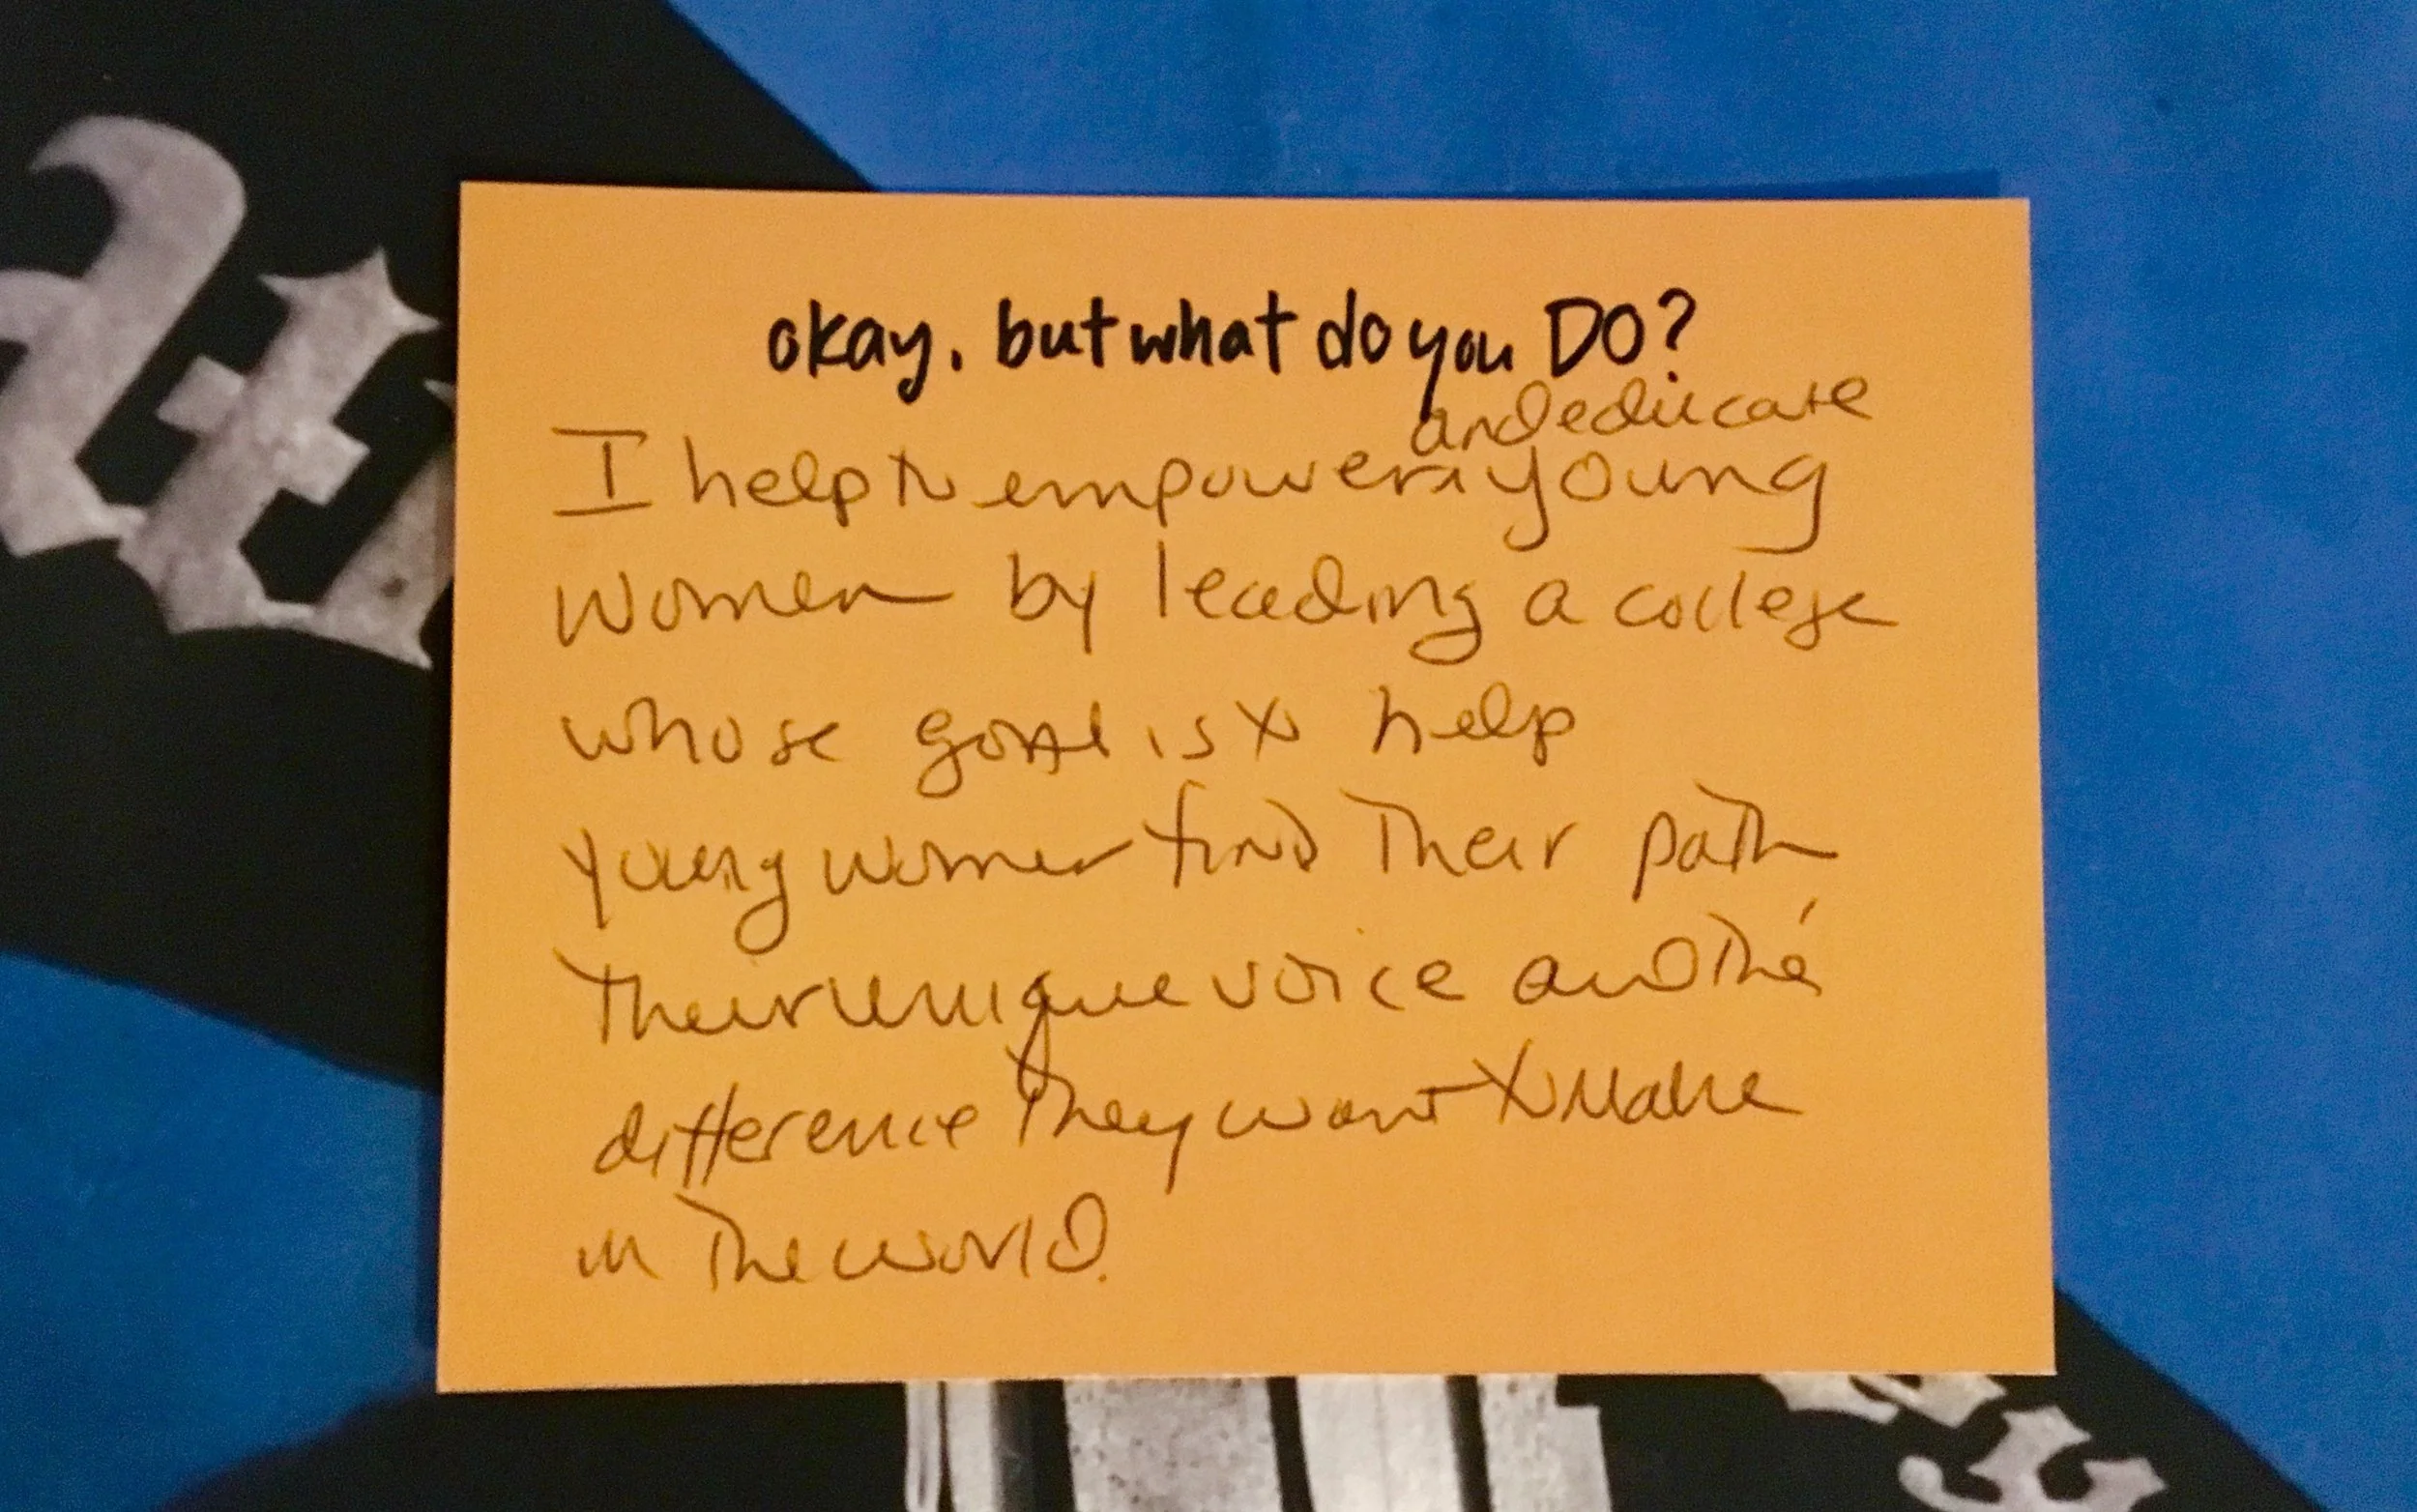 okay. but what do you DO?
and educate
I help to empower young
women by leading a college
whose goal is to help
young women find their path
their unique voice and the
difference they want to make
in the world.